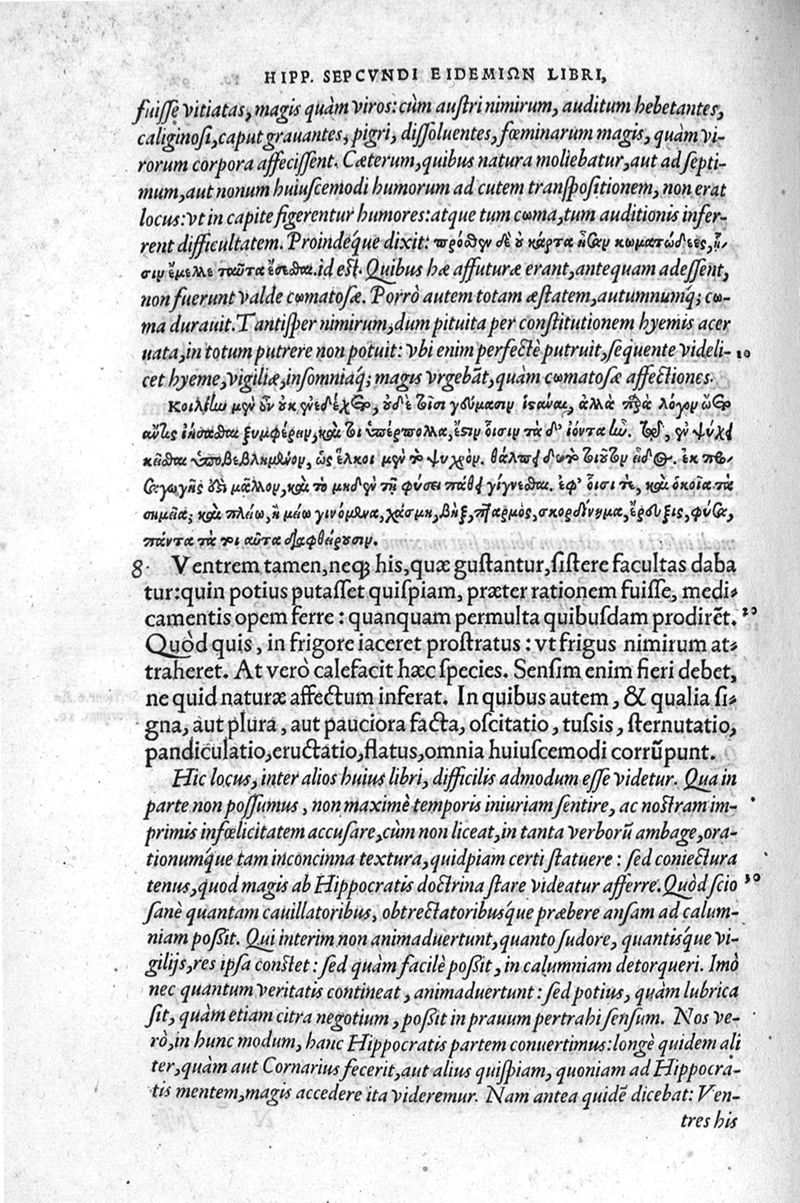 HIPP. SEPCVNDI EIDEMIΩN LIBRI,
fuiſſe vitiatas, magis quàm viros: cùm auſtri nimirum, auditum hebetantes,
caliginoſi, caput grauantes, pigri, diſſoluentes, fœminarum magis, quàm vi-
rorum corpora affeciſſent. Cæterum, quibus natura moliebatur, aut ad ſepti-
mum, aut nonum huiuſcemodi humorum ad cutem tranſpoſitionem, non erat
locus: vt in capite figerentur humores: atque tum cωma, tum auditionis infer-
rent difficultatem. Proindéque dixit: πρόσθεν δὲ ὀ κάρτα ἦσαν κωματώδεες, ᾗ-
σιν ἔμελλε ταῦτα ἔσεσθαι. id eſt. Quibus hæ affuturæ erant, antequam adeſſent,
non fuerunt valde cωmatoſæ. Porrò autem totam æſtatem, autumnumq́; cω-
ma durauit. Tantiſper nimirum, dum pituita per conſtitutionem hyemis acer
uata, in totum putrere non potuit: vbi enim perfectè putruit, ſequente videli- 10
cet hyeme, vigiliæ, inſomniaq́; magis vrgebãt, quàm cωmatoſæ affectiones.
Κοιλίην μὲν ὖν οὐκ ἐνεδέχετο, οὐδὲ τοῖσι γεύμασιν ἱστάναι, ἀλλὰ παρὰ λόγον
κεῖσθαι ὑποβεβλημένον, ὡς ἕλκοι μὲν τὸ ψυχρόν. θάλπει δὲ τὸ τοιοῦτον εἶδος. ἐκ προσ-
αγωγῆς δεῖ μᾶλλον, καὶ τὸ μηδὲν τῇ φύσει πάθει γίγνεσθαι. ἐφ' οἷσι τε, καὶ ὁκοῖα τὰ
σημεῖα; καὶ πλείω, ἢ μείω γινόμενα, χάσμη, βὴξ, πταρμὸς, σκορδίνημα, ἔρευξις, φύσα,
πάντα τὰ τοιαῦτα διαφθείρουσιν.
8· Ventrem tamen, neq; his, quæ guſtantur, ſiſtere facultas daba
tur: quin potius putaſſet quiſpiam, præter rationem fuiſſe, medi-
camentis opem ferre: quanquam permulta quibuſdam prodirēt. 20
Quòd quis, in frigore iaceret proſtratus: vt frigus nimirum at-
traheret. At verò calefacit hæc ſpecies. Senſim enim fieri debet,
ne quid naturæ affectum inferat. In quibus autem, & qualia ſi-
gna, aut plura, aut pauciora facta, oſcitatio, tuſsis, ſternutatio,
pandiculatio, eructatio, flatus, omnia huiuſcemodi corrũpunt.
Hic locus, inter alios huius libri, difficilis admodum eſſe videtur. Qua in
parte non poſſumus, non maximè temporis iniuriam ſentire, ac noſtram im-
primis infœlicitatem accuſare, cùm non liceat, in tanta verborũ ambage, ora-
tionumq́ue tam inconcinna textura, quidpiam certi ſtatuere: ſed coniectura
tenus, quod magis ab Hippocratis doctrina ſtare videatur afferre. Quòd ſcio 30
ſanè quantam cauillatoribus, obtrectatoribuſque præbere anſam ad calum-
niam poſſit. Qui interim non animaduertunt, quanto ſudore, quantiſque vi-
gilijs, res ipſa conſtet: ſed quàm facilè poſſit, in calumniam detorqueri. Imò
nec quantum veritatis contineat, animaduertunt: ſed potius, quàm lubrica
ſit, quàm etiam citra negotium, poſſit in prauum pertrahi ſenſum. Nos ve-
rò, in hunc modum, hanc Hippocratis partem conuertimus: longè quidem ali
ter, quàm aut Cornarius fecerit, aut alius quiſpiam, quoniam ad Hippocra-
tis mentem, magis accedere ita videremur. Nam antea quidẽ dicebat: Ven-
tres his